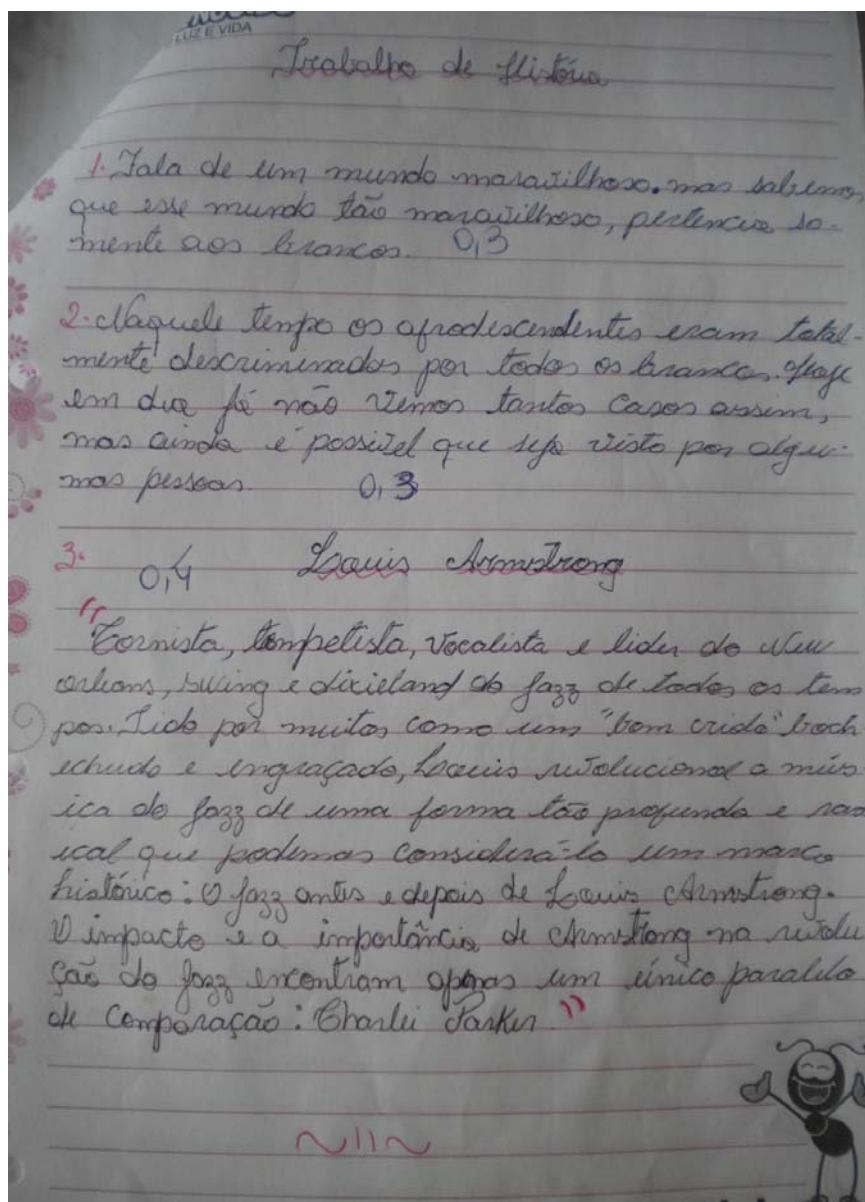 LUZ E VIDA
Trabalho de História
1. Fala de um mundo maravilhoso. mas sabemos
que esse mundo tão maravilhoso, pertencia so-
mente aos brancos. 0,3
2. Naquele tempo os afrodescendentes eram total-
mente descriminados por todos os brancos. Hoje
em dia já não vemos tantos casos assim,
mas ainda é possivel que seja visto por algu-
mas pessoas. 0,3
3. 0,4 Louis Armstrong
"Cornista, tompetista, vocalista e lider do New
orleans, swing e dixieland do jazz de todos os tem
pos. Tido por muitos como um "bom crido" boch
echudo e engraçado, Louis revolucionol a mús
ica do jazz de uma forma tão profunda e rad
ical que podemos considerá-lo um marco
histórico: O jazz antes e depois de Louis Armstrong.
O impacto e a importância de Armstrong na revolu
ção do jazz encontram apenas um único paralelo
de comparação: Charlei Parker."